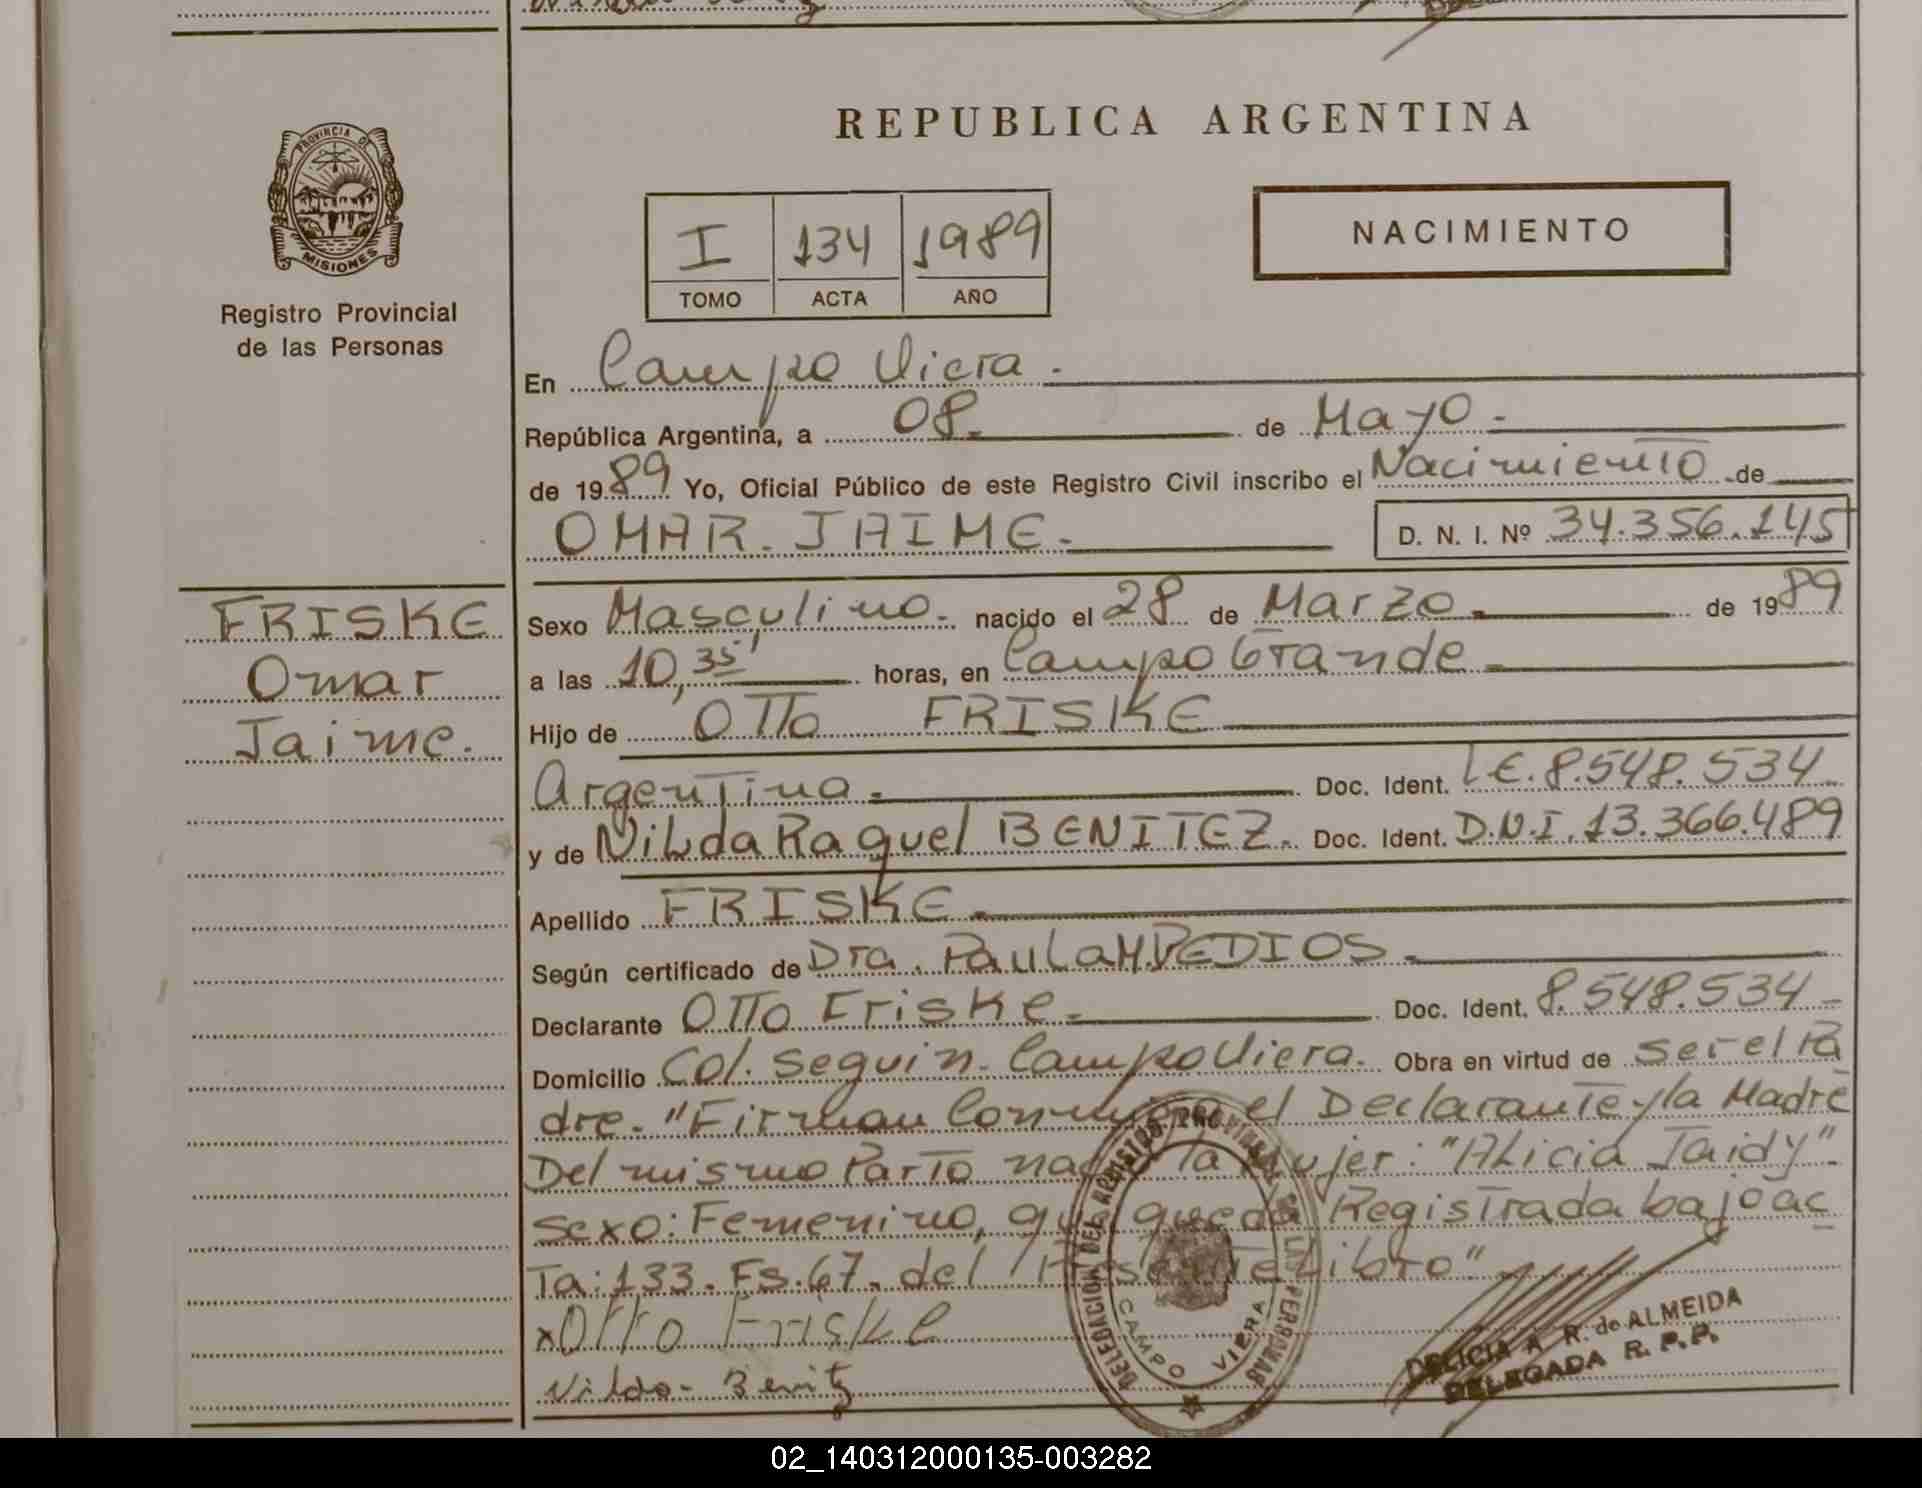 PROVINCIA DE
MISIONES
Registro Provincial
de las Personas
FRISKE
Omar
Jaime.
REPUBLICA ARGENTINA
I 134 1989
TOMO ACTA AÑO
NACIMIENTO
En Campo Viera.
República Argentina, a 08. de Mayo.
de 1989 Yo, Oficial Público de este Registro Civil inscribo el Nacimiento de
OMAR. JAIME. D. N. I. Nº 34.356.145
Sexo Masculino. nacido el 28 de Marzo. de 1989
a las 10,35' horas, en Campo Grande
Hijo de OTTO FRISKE
Argentina. Doc. Ident. L.E. 8.548.534
y de NiLda Raquel BENITEZ. Doc. Ident. D.N.I. 13.366.489
Apellido FRISKE.
Según certificado de Dra. PauLa M.
Declarante OTTO Friske. Doc. Ident. 8.548.534
Domicilio Col. Seguin. Campo Viera. Obra en virtud de ser el Pa
dre. "Firman Conmigo el Declarante y la Madre
Del mismo Parto nació la Mujer: "ALicia Jaidy".
sexo: Femenino, que queda Registrada bajo ac
Ta: 133. Fs. 67. del Presente Libro"
x Otto Friske
Nilda. Benitz
DELEGACION DEL REGISTRO PROVINCIAL DE LAS PERSONAS
CAMPO VIERA
DELICIA A R. de ALMEIDA
DELEGADA R. P. P.
02_140312000135-003282